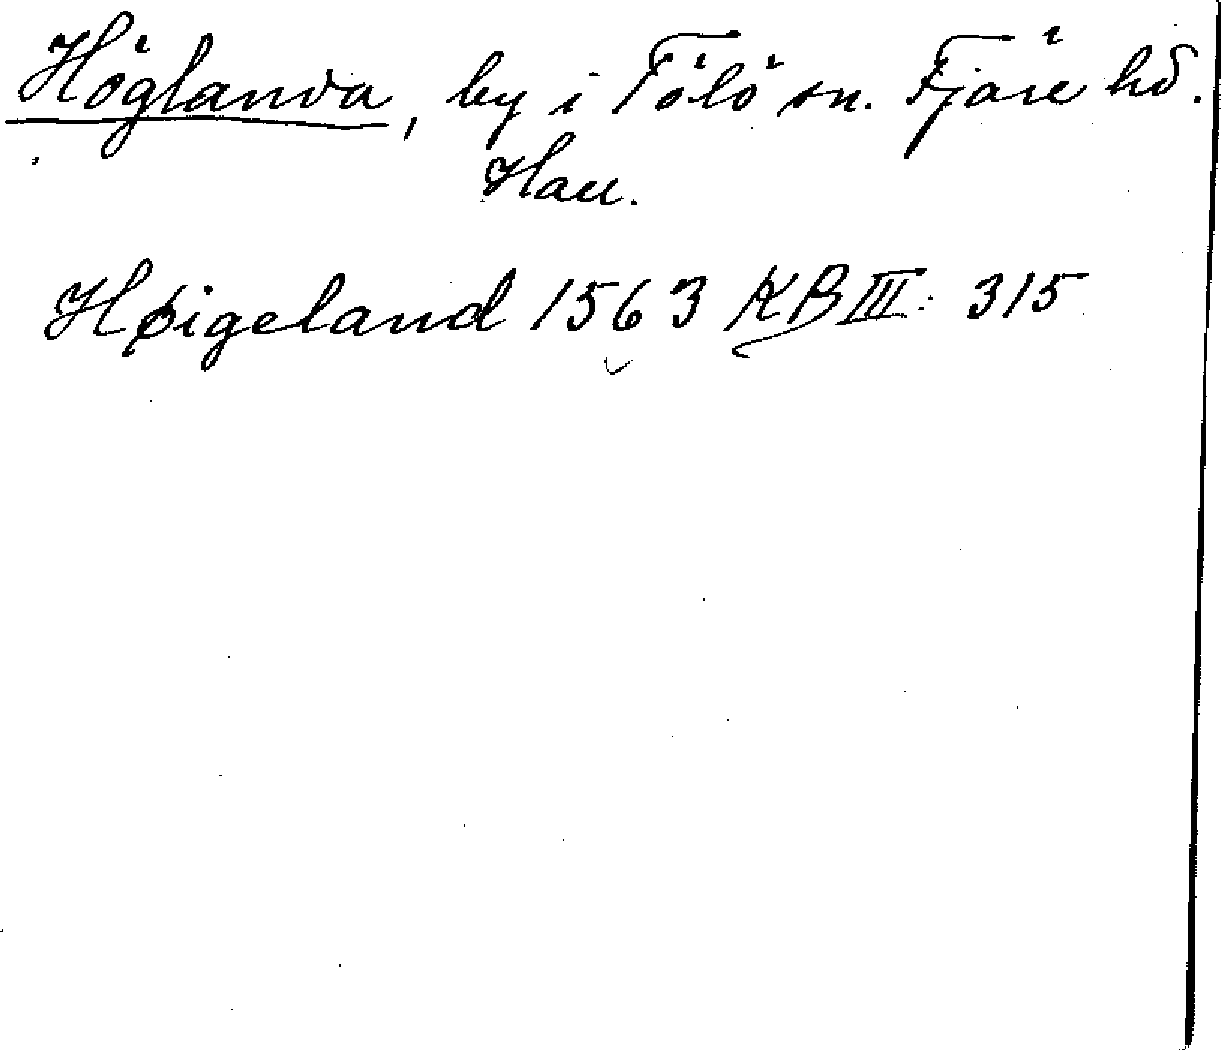 Höglanda, by i Fölö sn. Fjäre hd.
Hall.
Høigeland 1563 KB III: 315